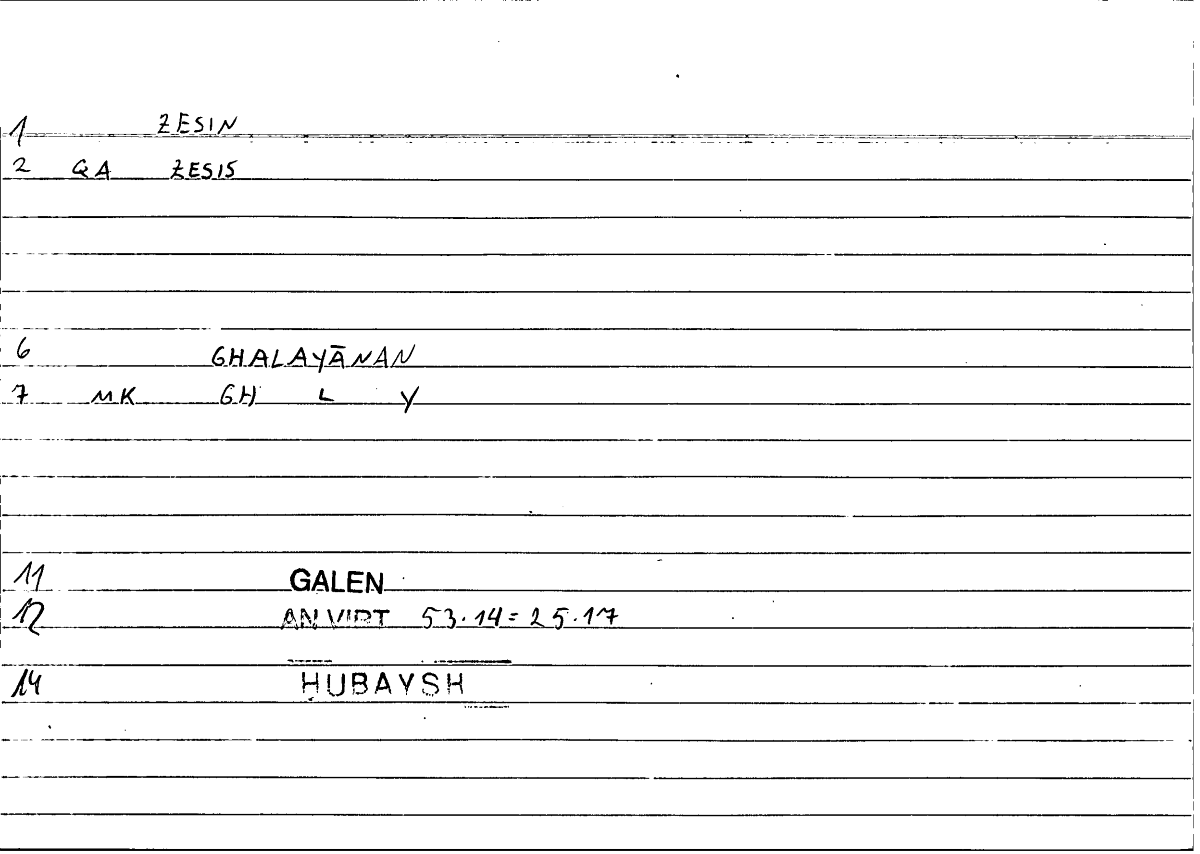 1 ZESIN
2 QA ZESIS
6 GHALAYĀNAN
7 MK GH L Y
11 GALEN
12 AN VIRT 53.14=25.17
14 ḤUBAYSH